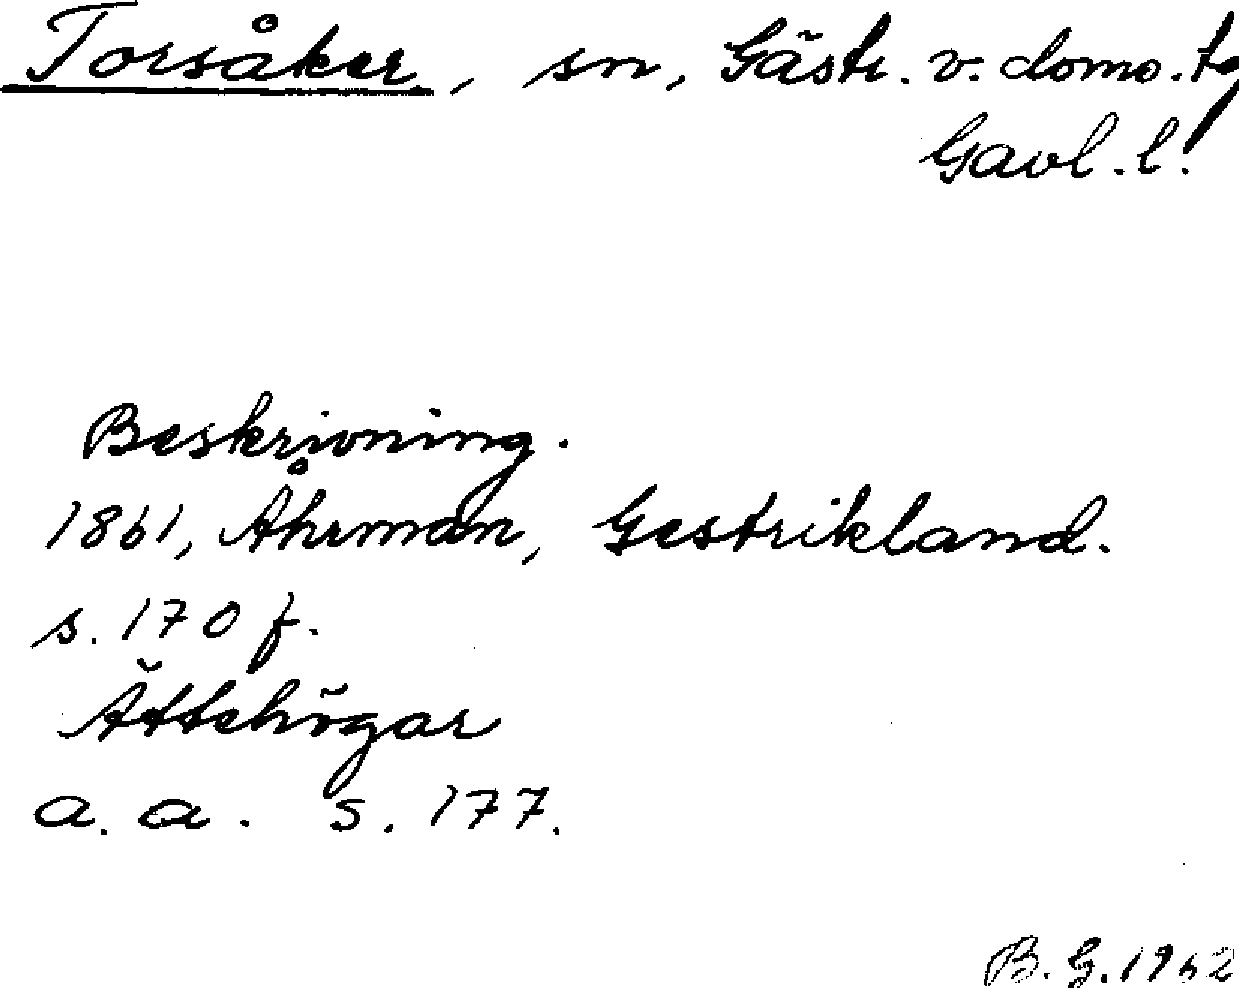 Torsåker, sn, Gästr. v. doms. tg
Gävl. l.
Beskrivning.
1861, Åhrman, Gestrikland.
s. 170 f.
Ättehögar
a. a. s. 177.
B. G. 1962